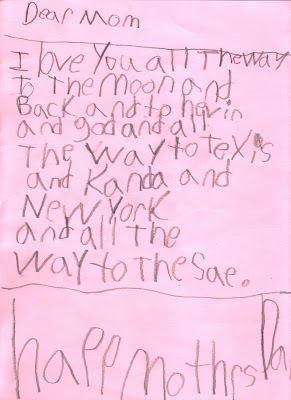 Dear Mom
I love you all the way
to the moon and
Back and to hevin
and god and all
The way to Texis
and Kanda and
New York
and all the
way to the sae.
happ mothrs Da